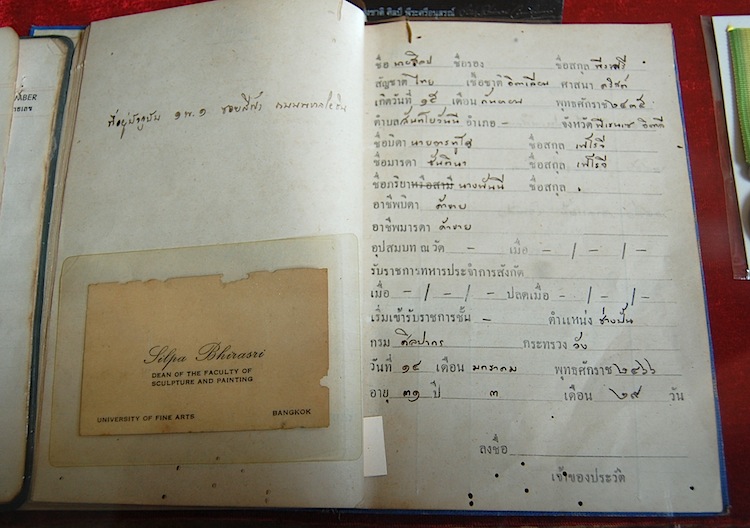 ศิลป์ พีระศรีอนุสรณ์
MBER
ที่อยู่ปัจจุบัน ๑๓.๑ ซอยสีฟ้า ถนนพหลโยธิน
Silpa Bhirasri
DEAN OF THE FACULTY OF
SCULPTURE AND PAINTING
UNIVERSITY OF FINE ARTS BANGKOK
ชื่อ นายศิลป ชื่อรอง ชื่อสกุล พีระศรี
สัญชาติ ไทย เชื้อชาติ อิตาเลียน ศาสนา คริสต์
เกิดวันที่ ๑๕ เดือน กันยายน พุทธศักราช ๒๔๓๕
ตำบล สันตโยวันนี อำเภอ - จังหวัด ฟิเรนเซ อิตาลี
ชื่อบิดา นายอารทูโด ชื่อสกุล เฟโรจี
ชื่อมารดา ซันตินา ชื่อสกุล เฟโรจี
ชื่อภริยาหรือสามี นางฟันนี ชื่อสกุล
อาชีพบิดา ค้าขาย
อาชีพมารดา ค้าขาย
อุปสมบท ณ วัด - เมื่อ - / - / -
รับราชการทหารประจำการสังกัด
เมื่อ - / - / - ปลดเมื่อ - / - / -
เริ่มเข้ารับราชการชั้น - ตำแหน่ง ช่างปั้น
กรม ศิลปากร กระทรวง วัง
วันที่ ๑๔ เดือน มกราคม พุทธศักราช ๒๔๖๖
อายุ ๓๑ ปี ๓ เดือน ๒๙ วัน
ลงชื่อ
เจ้าของประวัติ